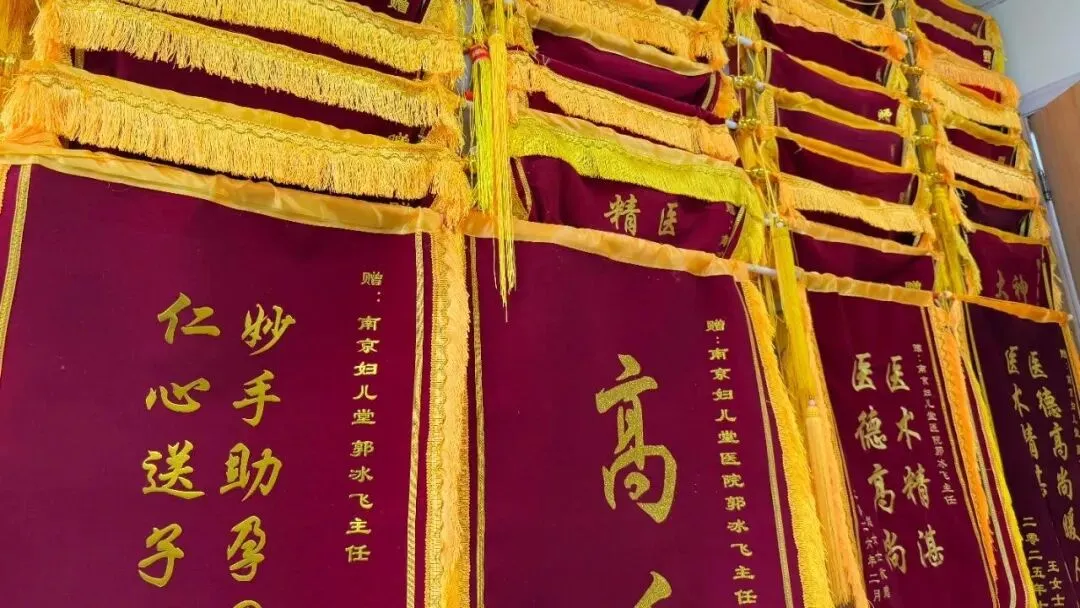 赠：南京妇儿堂 郭冰飞主任
妙手助孕
仁心送子
精医
赠：南京妇儿堂医院郭冰飞主任
高
赠：南京妇儿堂医院郭冰飞主任
医术精湛
医德高尚
大神
医德高尚暖
医术精
王女士
二零二五年